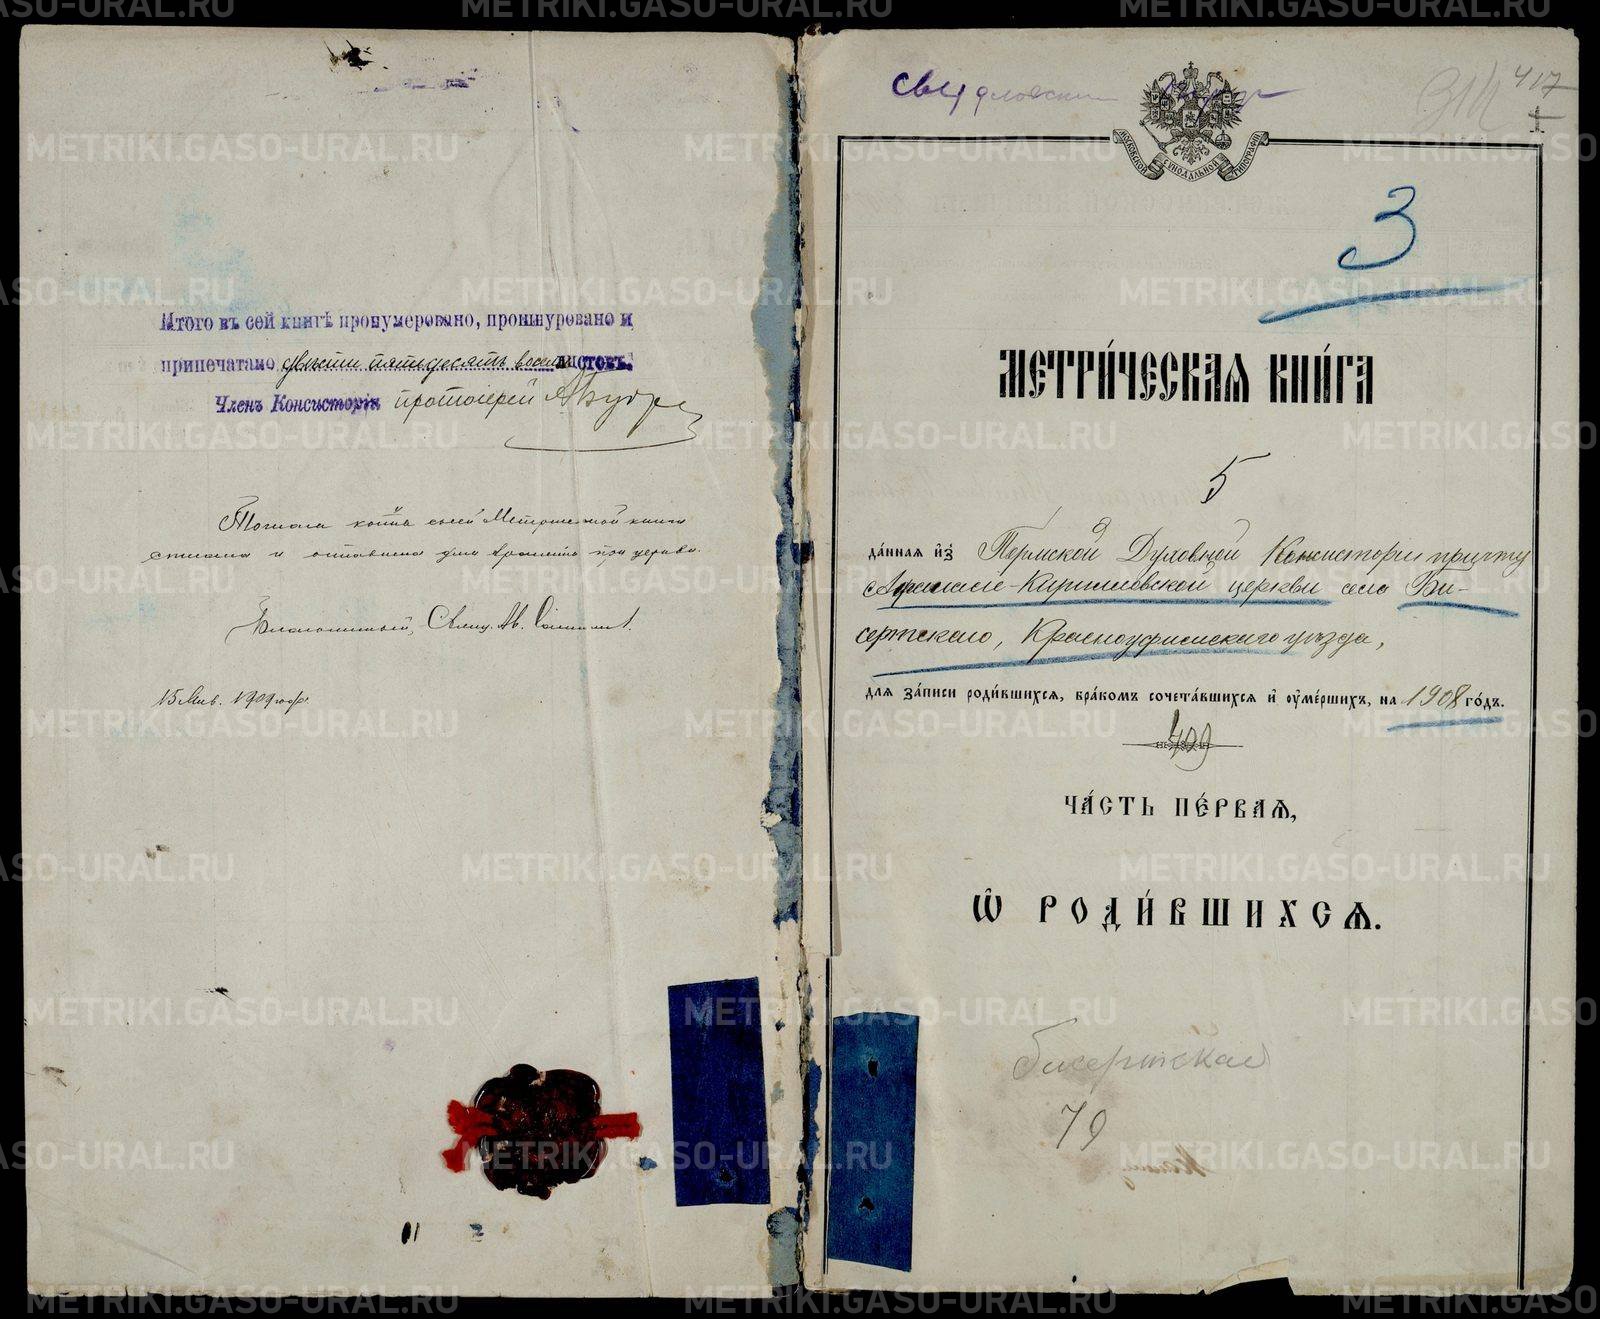 Итого въ сей книгѣ пронумеровано, прошнуровано и
припечатано двѣсти пятьдесятъ восемь листовъ.
Членъ Консисторіи протоіерей
копія сей Метрической книги
списана и оставлена для храненія при церкви.
Благочинный, Свящ.
15 1909 года
417
1
МОСКОВСКОЙ СУНОДАЛЬНОЙ ТИПОГРАФІИ
3
МЕТРИ́ЧЕСКАѦ КНИ́ГА
5
да́нная и҆з̾ Пермской Духовной Консисторіи причту
Аѳанасіе-Кирилловской церкви села Би-
сертскаго, Красноуфимскаго уѣзда,
для за́писи роди́вшихся, бра́комъ сочета́вшихся и҆ оу҆ме́ршихъ, на 1908 го́дъ.
409
ЧА́СТЬ ПЕ́РВАѦ,
Ѡ҆ РОДИ́ВШИХСѦ.
Бисертская
79
METRIKI.GASO-URAL.RU